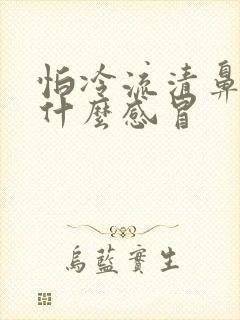 怕冷流清鼻
什麼感冒
烏藍實生